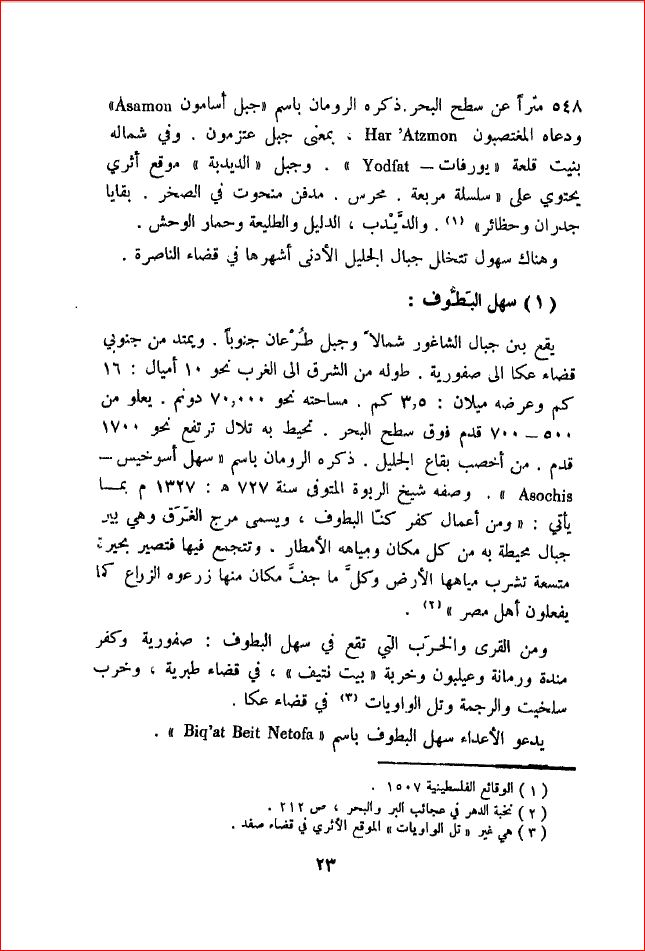 ٥٤٨ متراً عن سطح البحر. ذكره الرومان باسم «جبل أسامون Asamon»
ودعاه المغتصبون Har 'Atzmon ، بمعنى جبل عتزمون . وفي شماله
بنيت قلعة « يورفات – Yodfat » . وجبل « الديدبة » موقع أثري
يحتوي على « سلسلة مربعة . محرس . مدفن منحوت في الصخر . بقايا
جدران وحظائر» (١) . والدَّيْدب ، الدليل والطليعة وحمار الوحش .
وهناك سهول تتخلل جبال الجليل الأدنى أشهرها في قضاء الناصرة .
(١) سهل البَطُّوف :
يقع بين جبال الشاغور شمالاً وجبل طُرْعان جنوباً . ويمتد من جنوبي
قضاء عكا الى صفورية . طوله من الشرق الى الغرب نحو ١٠ أميال : ١٦
كم وعرضه ميلان : ٣,٥ كم . مساحته نحو ٧٠,٠٠٠ دونم . يعلو من
٥٠٠ – ٧٠٠ قدم فوق سطح البحر . تحيط به تلال ترتفع نحو ١٧٠٠
قدم . من أخصب بقاع الجليل . ذكره الرومان باسم « سهل أسوخيس –
Asochis » . وصفه شيخ الربوة المتوفى سنة ٧٢٧ ه : ١٣٢٧ م بمــا
يأتي : « ومن أعمال كفر كنّا البطوف ، ويسمى مرج الغَرَق وهي بين
جبال محيطة به من كل مكان ومياهه الأمطار . وتتجمع فيها فتصير بحيرة
متسعة تشرب مياهها الأرض وكلَّ ما جفَّ مكان منها زرعوه الزراع كما
يفعلون أهل مصر » (٢) .
ومن القرى والخرَب التي تقع في سهل البطوف : صفورية وكفر
مندة ورمانة وعيلبون وخربة « بيت نتيف » ، في قضاء طبرية ، وخرب
سلخيت والرجمة وتل الواويات (٣) في قضاء عكا .
يدعو الأعداء سهل البطوف باسم « Biq'at Beit Netofa » .
(١) الوقائع الفلسطينية ١٥٠٧ .
(٢) نخبة الدهر في عجائب البر والبحر ، ص ٢١٢ .
(٣) هي غير « تل الواويات » الموقع الأثري في قضاء صفد .
٢٣